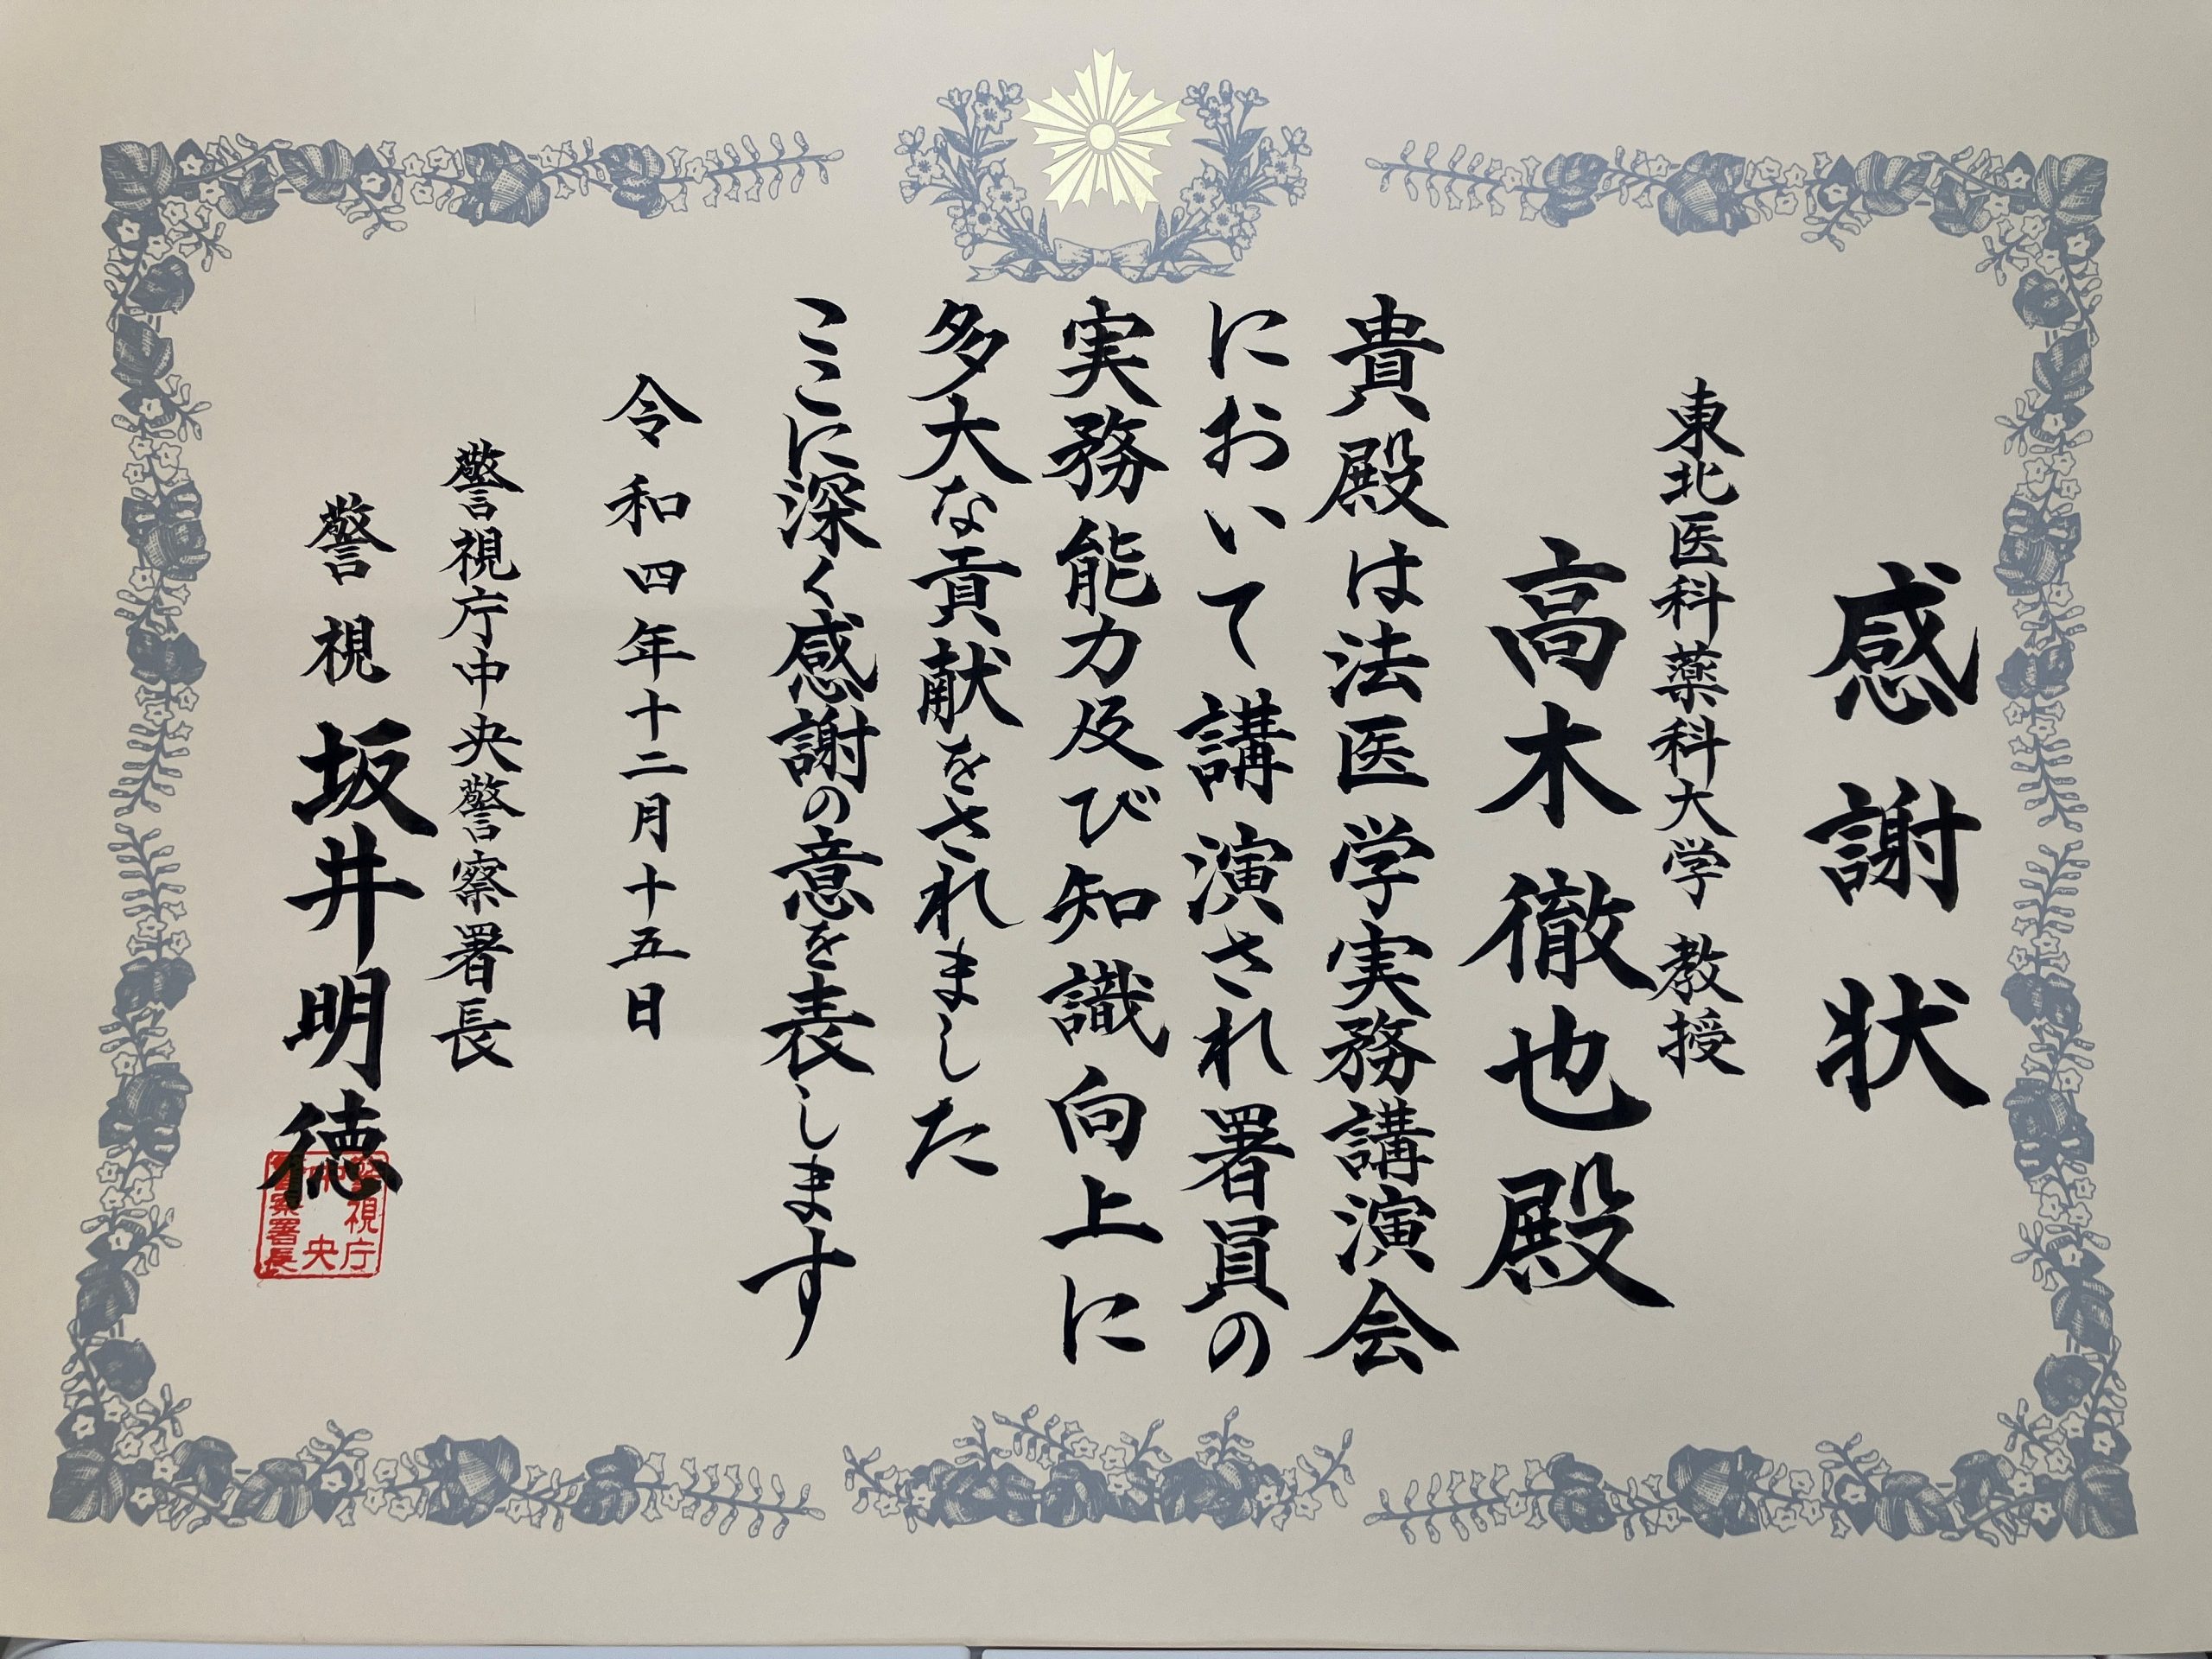 感謝状
東北医科薬科大学 教授
高木徹也殿
貴殿は法医学実務講演会
において講演され署員の
実務能力及び知識向上に
多大な貢献をされました
ここに深く感謝の意を表します
令和四年十二月十五日
警視庁中央警察署長
警視 坂井明徳
警視庁
中央
警察署長